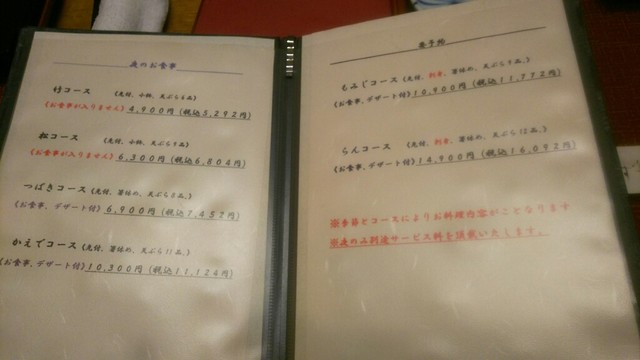 夜のお食事
竹コース (先付、小鉢、天ぷら6品)
(お食事が入りません) 4,900円 (税込5,292円)
松コース (先付、小鉢、天ぷら9品)
(お食事が入りません) 6,300円 (税込6,804円)
つばきコース (先付、箸休め、天ぷら8品)
(お食事、デザート付) 6,900円 (税込7,452円)
かえでコース (先付、箸休め、天ぷら11品)
(お食事、デザート付) 10,300円 (税込11,124円)
もみじコース (先付、刺身、箸休め、天ぷら9品、)
(お食事、デザート付) 10,900円 (税込11,772円)
らんコース (先付、刺身、箸休め、天ぷら12品、)
(お食事、デザート付) 14,900円 (税込16,092円)
※季節とコースによりお料理内容がことなります
※夜のみ別途サービス料を頂戴いたします。